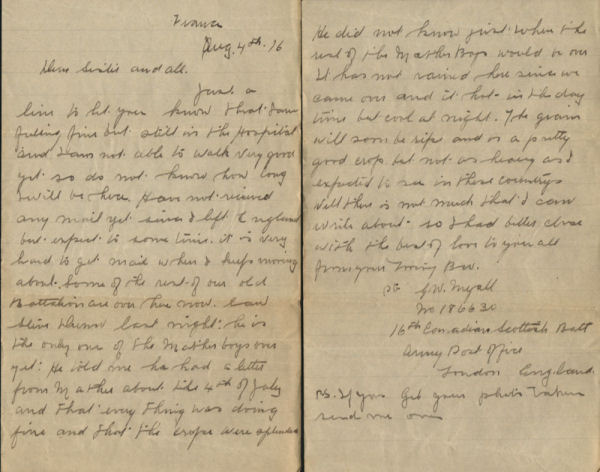 France
Aug. 4th. 16
Dear Sister and all.
Just a
line to let you know that I am
feeling fine but still in the Hospital
and I am not able to walk very good
yet so do not know how long
I will be here. Have not received
any mail yet since I left England
but expect to some time. it is very
hard to get mail when I keep moving
about. Some of the rest of our old
Battalion are over here now. I saw
Steve last night. he is
the only one of the Mather boys over
yet. He told me he had a letter
from Mather about the 4th of July
and that every thing was doing
fine and that the crops were splended
He did not know just when the
rest of the Mather Boys would be over
It has not rained here since we
came over and it hot in the day
time but cool at night. The grain
will soon be ripe and is a pretty
good crop but not as heavy as I
expected to see in these countrys
Well this is not much that I can
write about so I had better close
with the best of love to you all
from your loving Bro.
Pte G.W. Myall
No 186630
16th Canadian Scottish Batt
Army Post Office
London England.
P.S. If you Get your photo taken
send me one